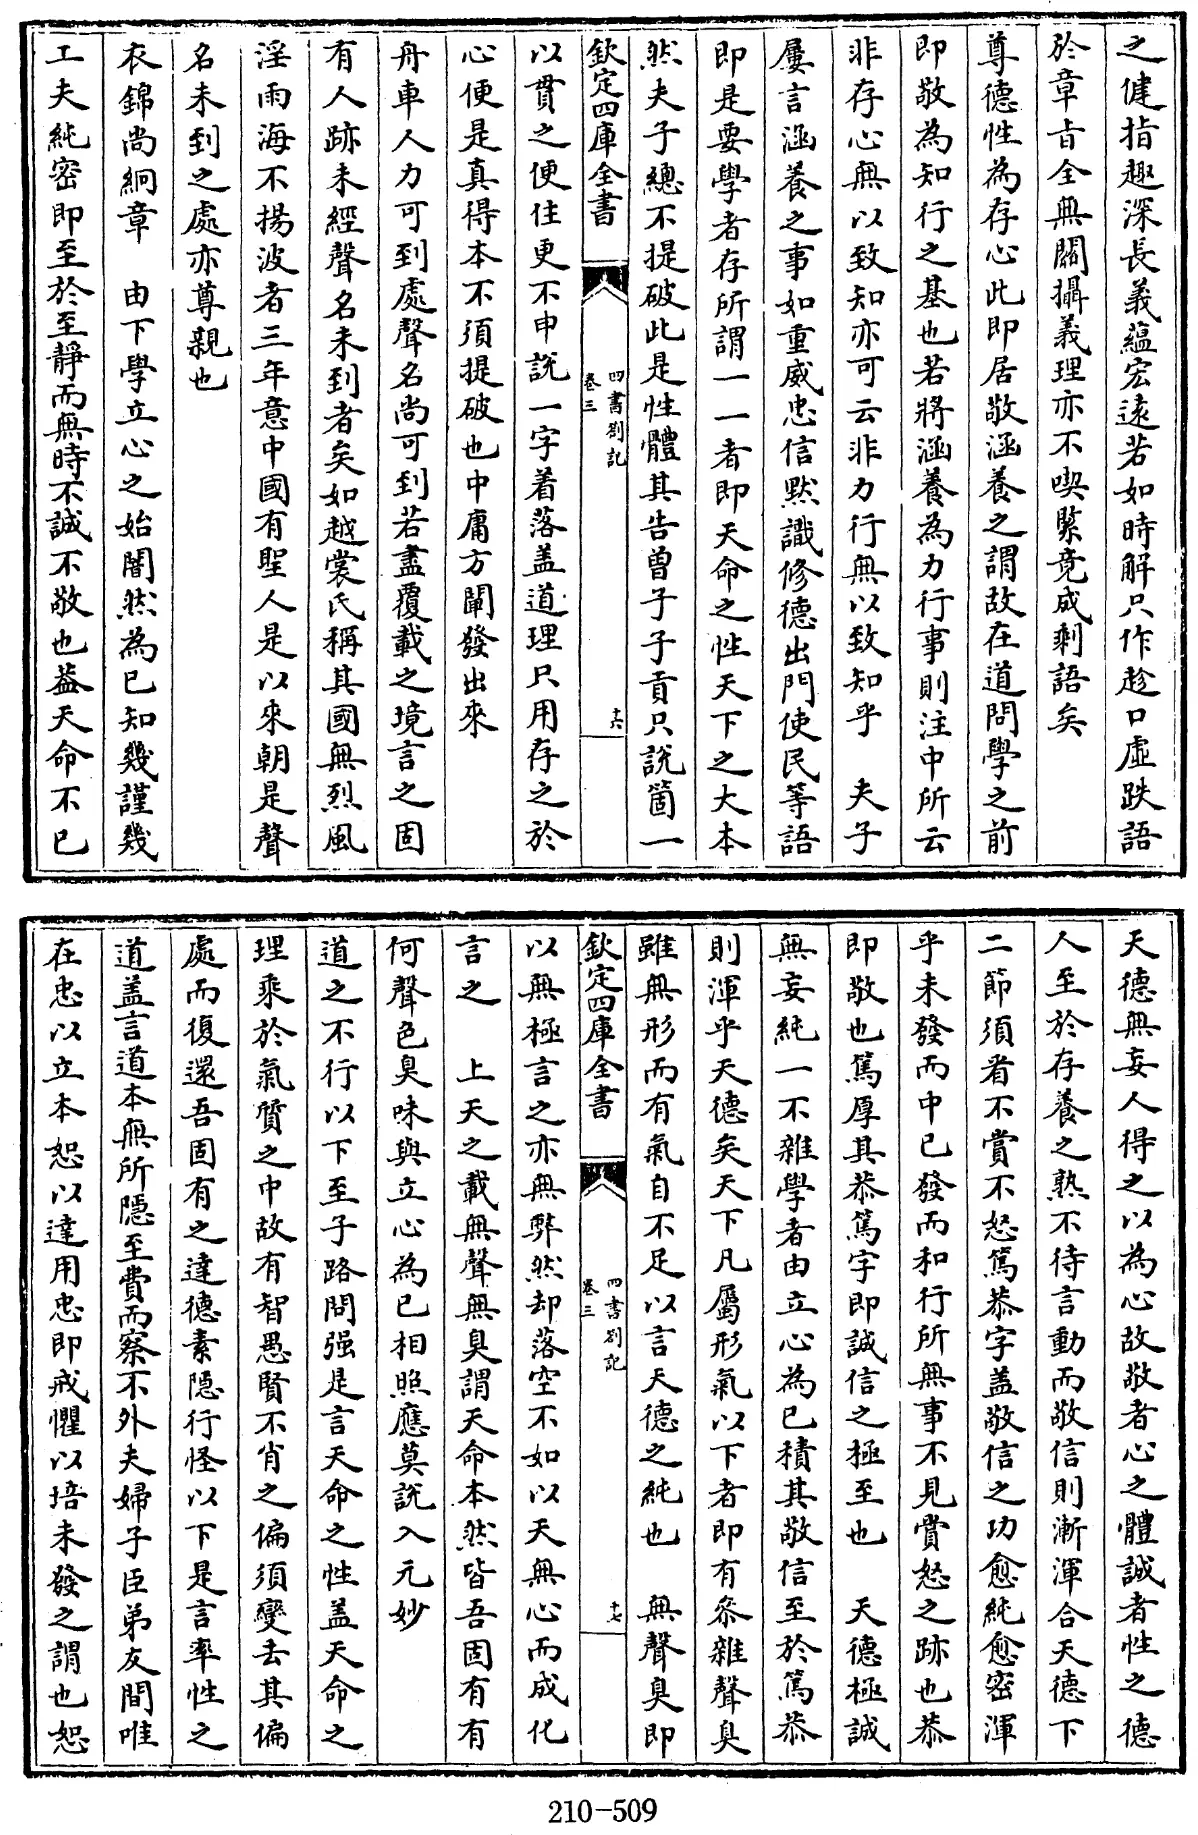 之健指趣深長義蘊宏遠若如時解只作趁口虛跌語
於章㫖全無關攝義理亦不喫緊竟成剩語矣
尊德性為存心此即居敬涵養之謂故在道問學之前
即敬為知行之基也若將涵養為力行事則注中所云
非存心無以致知亦可云非力行無以致知乎　夫子
屢言涵養之事如重威忠信黙識修德出門使民等語
即是要學者存所謂一一者即天命之性天下之大本
然夫子總不提破此是性體其告曾子子貢只說箇一
欽定四庫全書
四書劄記
卷三
十六
以貫之便住更不申説一字着落盖道理只用存之於
心便是真得本不須提破也中庸方闡發出來
舟車人力可到處聲名尚可到若盡覆載之境言之固
有人跡未經聲名未到者矣如越裳氏稱其國無烈風
淫雨海不揚波者三年意中國有聖人是以來朝是聲
名未到之處亦尊親也
衣錦尚絅章　由下學立心之始闇然為已知幾謹幾
工夫純密即至於至靜而無時不誠不敬也葢天命不已
天德無妄人得之以為心故敬者心之體誠者性之德
人至於存養之熟不待言動而敬信則漸渾合天德下
二節須看不賞不怒篤恭字盖敬信之功愈純愈密渾
乎未發而中已發而和行所無事不見賞怒之跡也恭
即敬也篤厚其恭篤字即誠信之極至也　天德極誠
無妄純一不雜學者由立心為已積其敬信至於篤恭
則渾乎天德矣天下凡屬形氣以下者即有叅雜聲臭
雖無形而有氣自不足以言天德之純也　無聲臭即
欽定四庫全書
四書劄記
卷三
十七
以無極言之亦無弊然却落空不如以天無心而成化
言之　上天之載無聲無臭謂天命本然皆吾固有有
何聲色臭味與立心為已相照應莫説入元妙
道之不行以下至子路問强是言天命之性盖天命之
理乘於氣質之中故有智愚賢不肖之偏須變去其偏
處而復還吾固有之達德素隱行怪以下是言率性之
道盖言道本無所隱至費而察不外夫婦子臣弟友間唯
在忠以立本恕以達用忠即戒懼以培未發之謂也恕
210-509